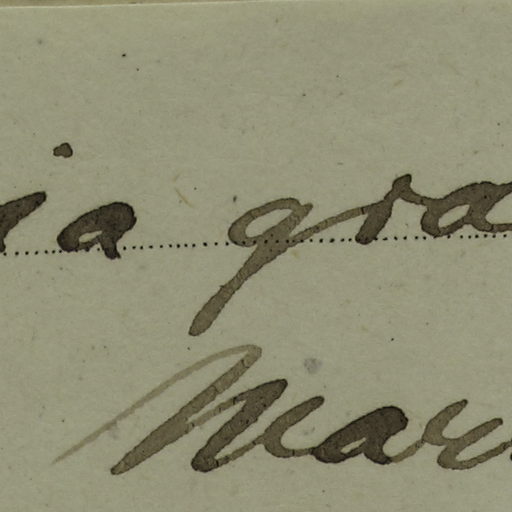 ia gra
Mar